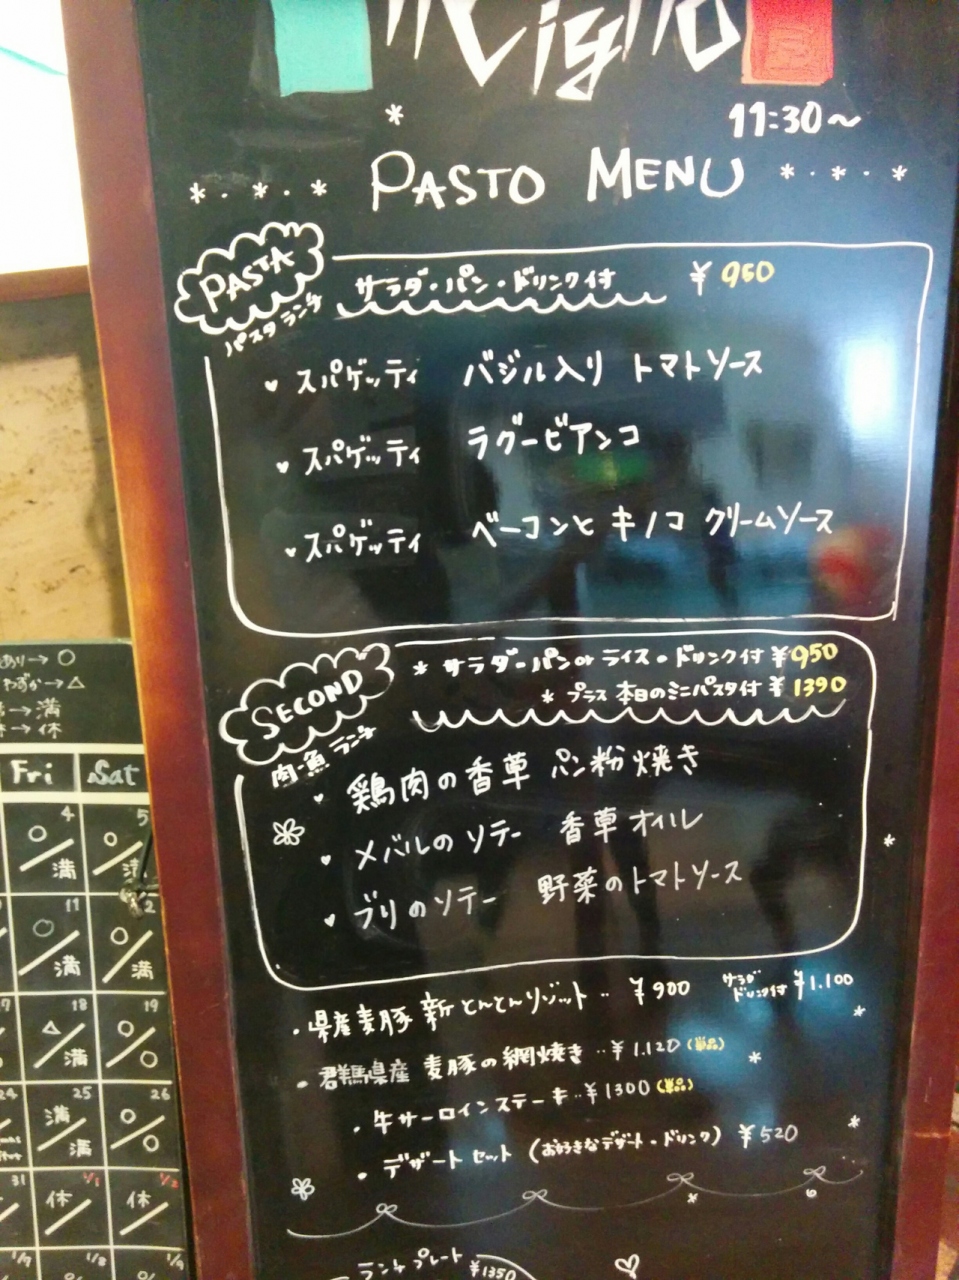 11:30〜
PASTO MENU
PASTA
パスタランチ
サラダ・パン・ドリンク付 ¥950
スパゲッティ バジル入り トマトソース
スパゲッティ ラグービアンコ
スパゲッティ ベーコンと キノコ クリームソース
SECOND
肉・魚 ランチ
* サラダ・パン or ライス・ドリンク付 ¥950
* プラス 本日のミニパスタ付 ¥1390
鶏肉の香草 パン粉焼き
メバルのソテー 香草オイル
ブリのソテー 野菜のトマトソース
・県産麦豚 新とんとんリゾット‥ ¥900 サラダ ドリンク付 ¥1.100
・群馬県産 麦豚の網焼き‥¥1.120(単品)
・牛サーロインステーキ‥¥1300(単品)
・デザートセット (お好きなデザート・ドリンク) ¥520
ランチプレート ¥1350
あり→○
わずか→△
→満
→休
Fri Sat
4 5
○/満 ○/満
11
○/満 ○/満
18 19
△/満 ○/○
24 25 26
満/満 ○/○
31 1/1 1/2
休/ 休/
1/7 1/8 1/9